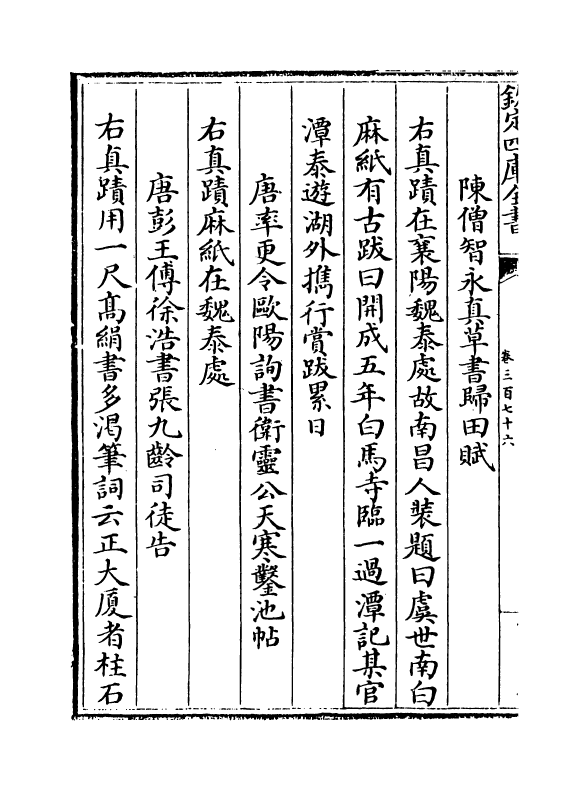 欽定四庫全書
卷三百七十六
陳僧智永真草書歸田賦
右真蹟在襄陽魏泰處故南昌人裝題曰虞世南白
麻紙有古跋曰開成五年白馬寺臨一過潭記某官
潭泰遊湖外攜行賞跋累日
唐率更令歐陽詢書衛靈公天寒鑿池帖
右真蹟麻紙在魏泰處
唐彭王傅徐浩書張九齡司徒告
右真蹟用一尺髙絹書多渴筆詞云正大厦者柱石